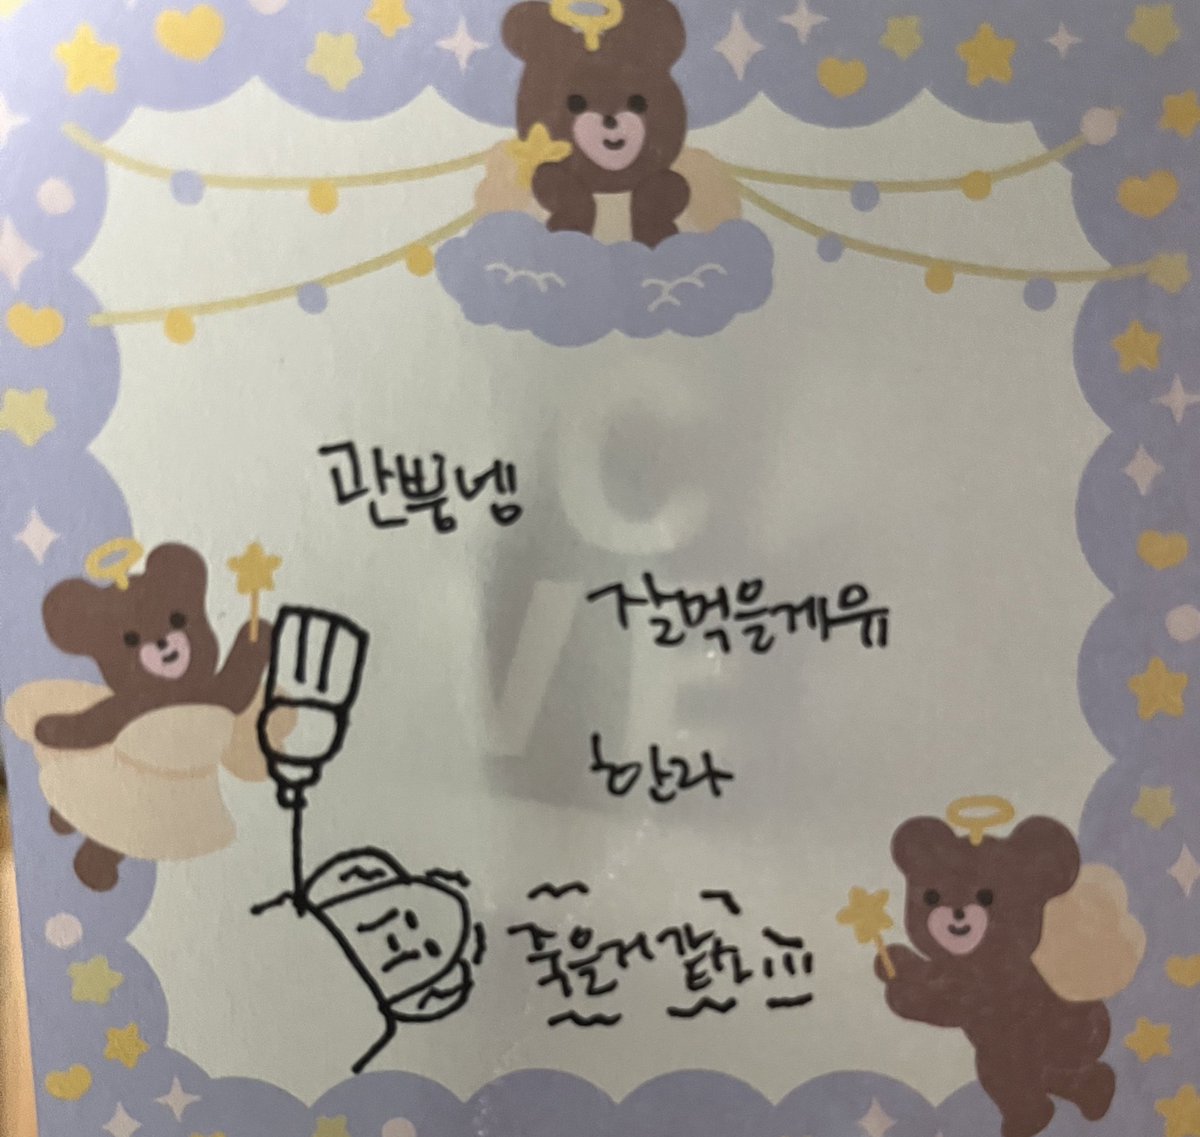 관뿡넴
잘먹을게유
한라
죽을거 같소!!!